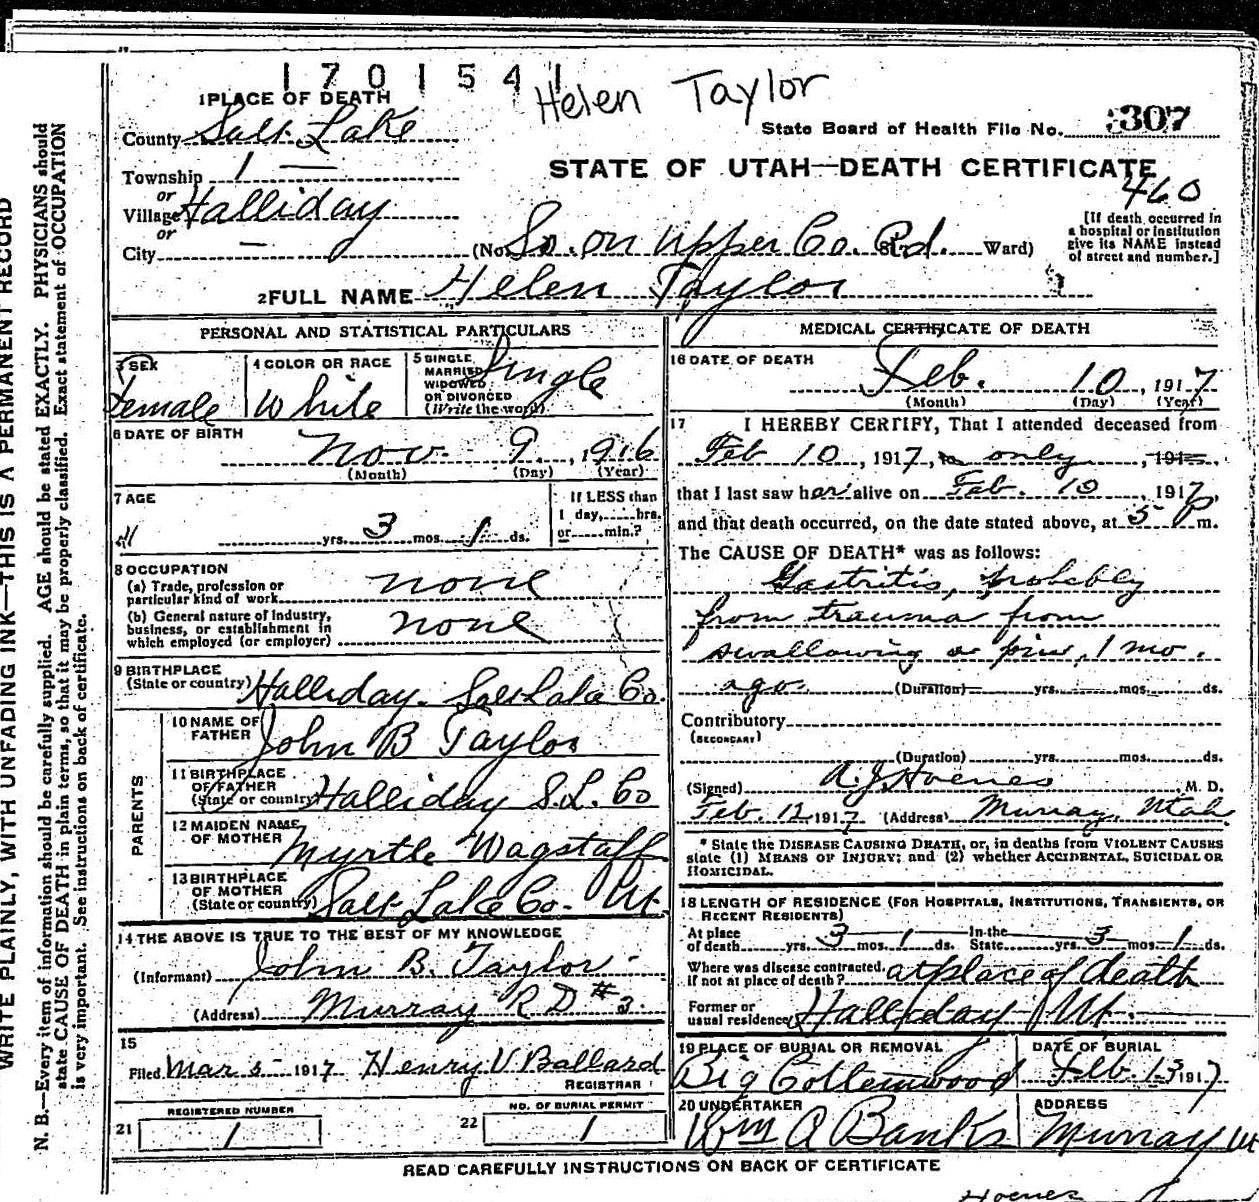 1701541
Helen Taylor
1 PLACE OF DEATH
County Salt Lake
State Board of Health File No. 307
Township 1 —
STATE OF UTAH—DEATH CERTIFICATE
460
or
Village Halliday
or
City —
(No. So. on Upper Co. Rd. St. Ward)
[If death occurred in
a hospital or institution
give its NAME instead
of street and number.]
2 FULL NAME Helen Taylor
PERSONAL AND STATISTICAL PARTICULARS
3 SEX
Female
4 COLOR OR RACE
White
5 SINGLE,
MARRIED
WIDOWED
OR DIVORCED
(Write the word)
Single
6 DATE OF BIRTH
Nov. 9, 1916
(Month) (Day) (Year)
7 AGE
yrs. 3 mos. 1 ds.
If LESS than
1 day, hrs.
or min.?
8 OCCUPATION
(a) Trade, profession or
particular kind of work none
(b) General nature of industry,
business, or establishment in
which employed (or employer) none
9 BIRTHPLACE
(State or country) Halliday. Salt Lake Co.
PARENTS
10 NAME OF
FATHER John B Taylor
11 BIRTHPLACE
OF FATHER
(State or country) Halliday S.L. Co
12 MAIDEN NAME
OF MOTHER Myrtle Wagstaff
13 BIRTHPLACE
OF MOTHER
(State or country) Salt Lake Co. Ut.
14 THE ABOVE IS TRUE TO THE BEST OF MY KNOWLEDGE
(Informant) John B. Taylor
(Address) Murray R D #3.
15
Filed Mar 5 1917 Henry V Ballard
REGISTRAR
REGISTERED NUMBER
21 1
NO. OF BURIAL PERMIT
22 1
MEDICAL CERTIFICATE OF DEATH
16 DATE OF DEATH
Feb. 10, 1917
(Month) (Day) (Year)
17 I HEREBY CERTIFY, That I attended deceased from
Feb 10, 1917, to only, 191
that I last saw her alive on Feb. 10, 1917,
and that death occurred, on the date stated above, at 5 P m.
The CAUSE OF DEATH* was as follows:
Gastritis, probably
from trauma from
swallowing a pin, 1 mo.
ago. (Duration) yrs. mos. ds.
Contributory
(SECONDARY)
(Duration) yrs. mos. ds.
(Signed) A. J. Hoenes, M. D.
Feb. 12, 1917 (Address) Murray, Utah
* State the DISEASE CAUSING DEATH, or, in deaths from VIOLENT CAUSES
state (1) MEANS OF INJURY; and (2) whether ACCIDENTAL, SUICIDAL OR
HOMICIDAL.
18 LENGTH OF RESIDENCE (FOR HOSPITALS, INSTITUTIONS, TRANSIENTS, OR
RECENT RESIDENTS)
At place In the
of death yrs. 3 mos. 1 ds. State yrs. 3 mos. 1 ds.
Where was disease contracted
if not at place of death? at place of death
Former or
usual residence Halliday Ut.
19 PLACE OF BURIAL OR REMOVAL
Big Cottonwood
DATE OF BURIAL
Feb. 13 1917
20 UNDERTAKER
Wm A Banks
ADDRESS
Murray Ut
READ CAREFULLY INSTRUCTIONS ON BACK OF CERTIFICATE
Hoenes
WRITE PLAINLY, WITH UNFADING INK—THIS IS A PERMANENT RECORD
N. B.—Every item of information should be carefully supplied. AGE should be stated EXACTLY. PHYSICIANS should
state CAUSE OF DEATH in plain terms, so that it may be properly classified. Exact statement of OCCUPATION
is very important. See instructions on back of certificate.